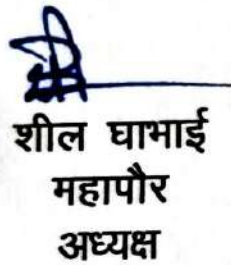 शील घाभाई
महापौर
अध्यक्ष